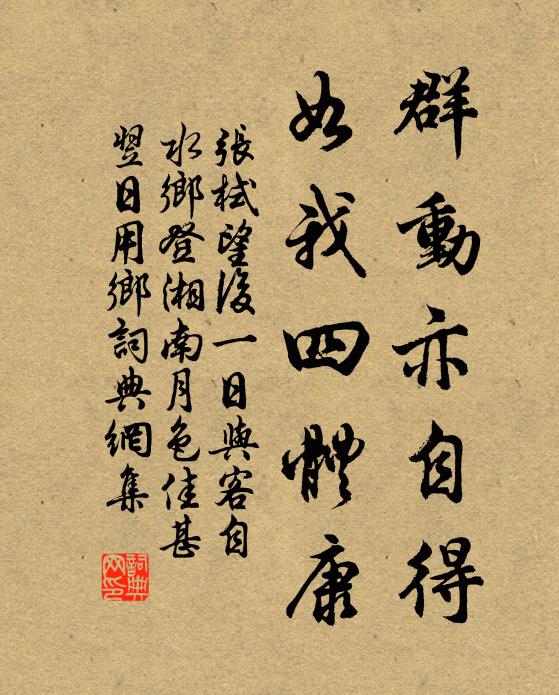 群動亦自得
如我四體康
張栻望後一日與客自
水鄉登湘南月色佳甚
翌日用鄉詞典網集
詞典网印